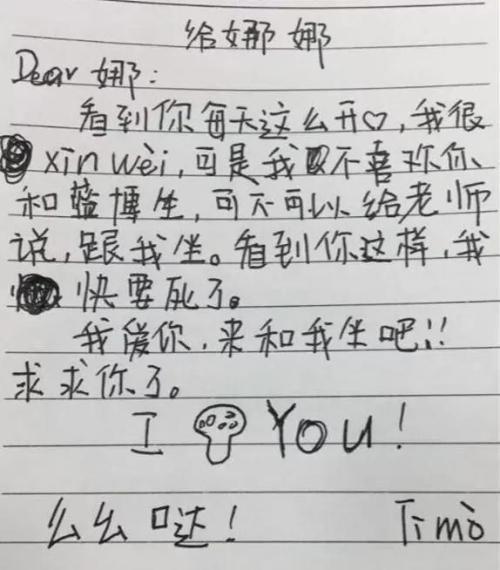 给娜娜
Dear 娜:
看到你每天这么开♡,我很
xīn wèi,可是我不喜欢你、
和蓝博生,可不可以给老师
说,跟我坐。看到你这样,我
快要死了。
我爱你,来和我坐吧!!
求求你了。
I You!
么么哒!
Timò